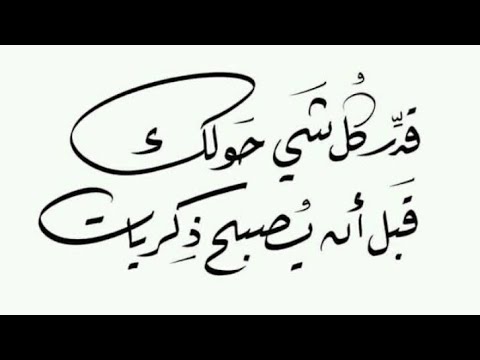 قدِّر كُل شَي حَولك
قَبل أن يُصبح ذِكريات